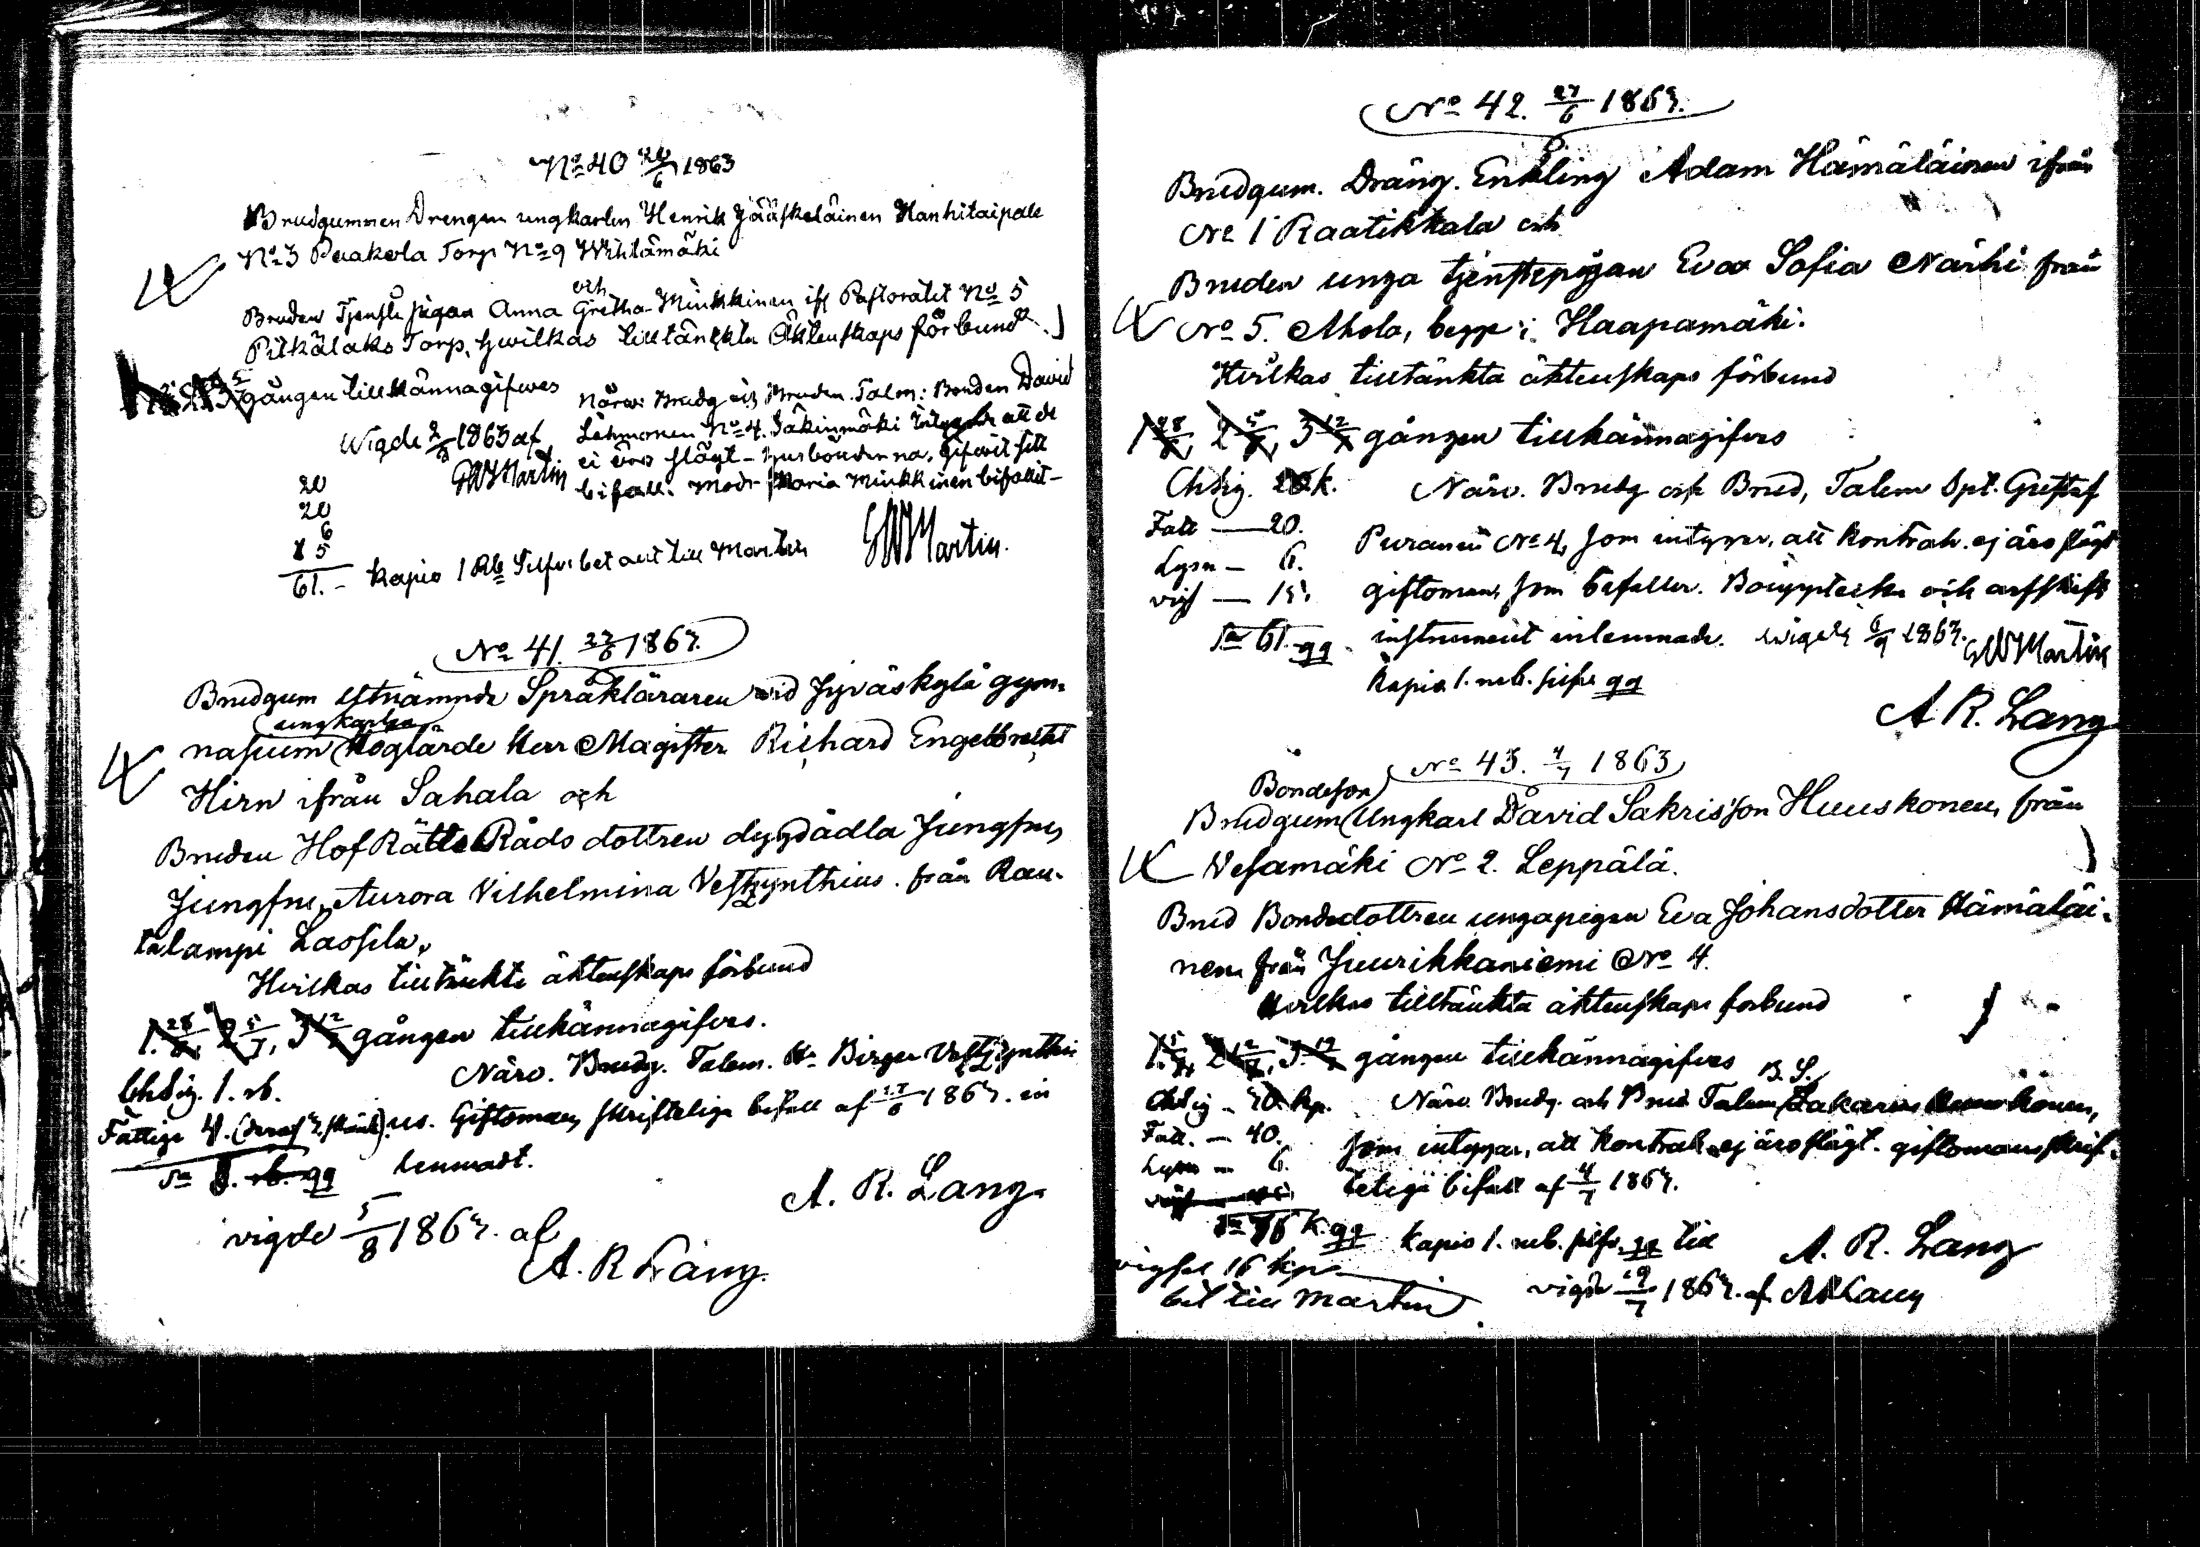 No 40 26/6 1863
Brudgummen Drengen ungkarlen Henrik Jääskeläinen Hanhitaipale
No 3 Paakola Torp No 9 Wihtämäki
och
Bruden Tjenste pigan Anna Gretha Minkkinen ifr Pastoratet No 5
Pitkälaks Torp, hwilkas tilltänkta Äktenskaps förbund
gången tillkännagifwes
Närv: Brudg och Bruden. Talm: Bonden David
Lehmonen No 4. Säkinmäki intygade att de
ei äro slägt - husbönderna, gifwit sitt
bifall: Modr Maria Minkkinen bifallit -
Wigde 2/8 1863 af
GWMartin
20
20
6
15
61. - Kapio 1 Rb Silfver betalt till Martin
GWMartin.
No 41. 27/6 1863.
Brudgum utnämnde Språkläraren vid Jyväskylä gym-
ungkarlen
nasium Höglärde Herr Magister Richard Engelbrecht
Hirn ifrån Sahala och
Bruden HofRätts Råds dottren dygdädla Jungfru
Jungfru Aurora Vilhelmina Vestzynthius från Rau-
talampi Lassila,
Hvilkas tilltänkta äktenskaps förbund
1. 28/6, 2 5/7, 3 12/7 gången tillkännagifves.
Närv. Brudg. Talem. Hr Birger Vestzynthi-
us. Giftoman skriftelige bifall af 27/6 1863. in
lemnadt.
Chdig. 1. rb.
Fattige 4.
A. R. Lang.
vigde 5/8 1863. af
A. R Lang.
No 42. 27/6 1863.
Brudgum. Dräng. Enkling Adam Hämäläinen ifrån
No 1 Raatikkala och
Bruden unga tjenstepigan Eva Sofia Närhi från
No 5. Ahola, begge i Haapamäki.
Hvilkas tilltänkta äktenskaps förbund
1 28/6, 2 5/7, 3 12/7 gången tillkännagifves
Chdig. 20 k.
Närv. Brudg och Brud, Talem Spt. Gustaf
Fatt — 20.
Puranen No 4, som intygar, att kontrah. ej äro slägt
Lysn — 6.
vigs — 15.
giftoman, som bifaller. Bouppteckn och arfskift
Sa 61. gg.
instrument inlemnade. vigde 6/9 1863. GWMartin
Kapio 1. rub. silfv gg
A R. Lang
No 43. 4/7 1863
Bondeson
Brudgum Ungkarl David Sakrisson Huuskonen, från
Vesamäki No 2. Leppälä.
Brud Bondedottren ungapigan Eva Johansdotter Hämäläi-
nen från Juurikkaniemi No 4.
Hvilkas tilltänkta äktenskaps forbund
1. 5/7, 2 12/7, 3. 19/7 gången tillkännagifves
B. S.
Chdig - 40. kp.
Närv. Brudg. och Brud Talem Zakarias Huuskonen,
Fatt. — 40.
som intygar, att kontrah. ej äro slägt. giftomans skrif-
Lysn — 6.
telige bifall af 4/7 1863.
Sa 86 k. gg
Kapio 1. rub. silfv. gg till
A. R. Lang
vigsel 16 kp
bet till Martin
vigde 19/7 1863. af A R Lang